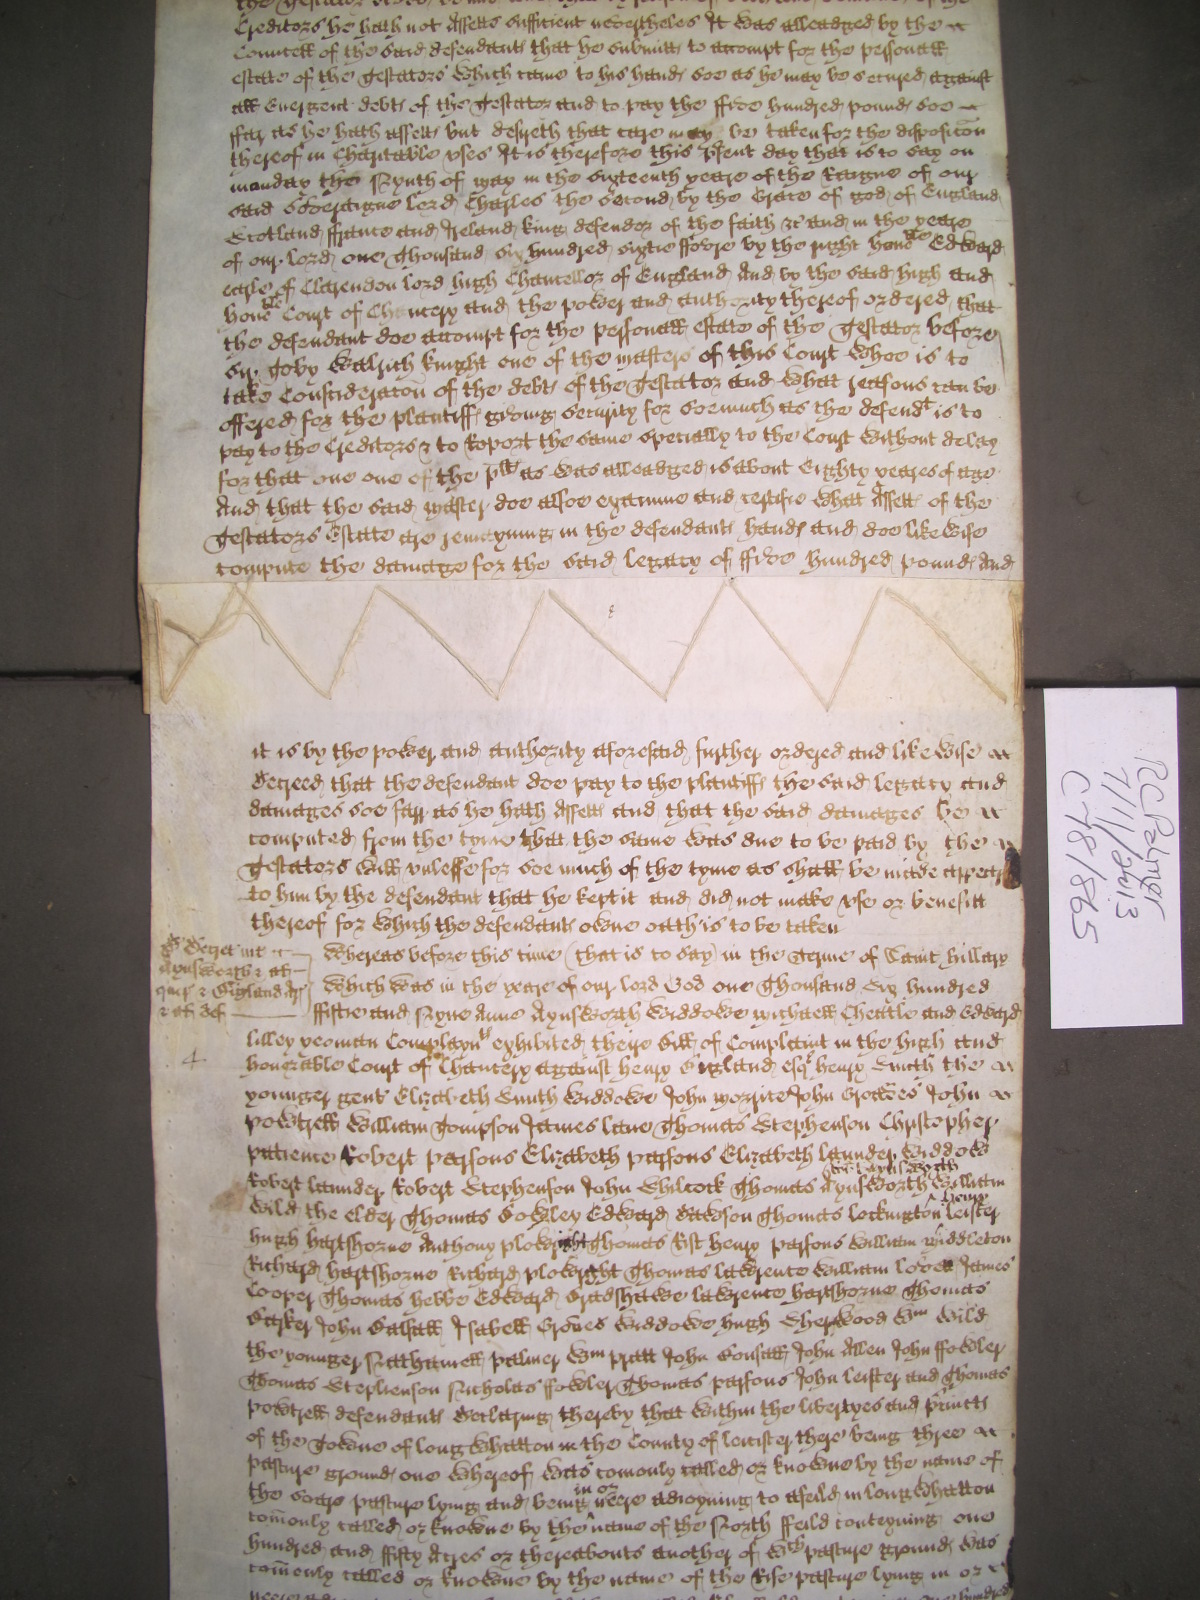 Creditors he hath not Assetts sufficient nevertheles It was alleadged by the
Councell of the said defendant that he submitts to accompt for the personall
estate of the Testators which came to his hands soe as he may be secured against
all Emergent debts of the Testator and to pay the ffive hundred pounds soe
ffar as he hath assetts but desyreth that care may be taken for the disposicon
thereof in Charitable uses It is therefore this psent day that is to say on
munday the Nynth of may in the sixteenth yeare of the Raigne of our
said Soveraigne lord Charles the second by the Grace of god of England
Scotland ffrance and Ireland king defendor of the faith &c and in the yeare
of our lord one thousand six hundred sixtie ffowre by the right honble Edward
earle of Clarendon lord high Chancellor of England And by the said high and
honble Court of Chancery and the power and authority thereof ordered that
the defendant doe accompt for the personall estate of the Testator before
Sr. Toby Walrich knight one of the masters of this Court whoe is to
take Consideracon of the debts of the Testator and what reasons can be
offered for the plantiffs giving security for soe much as the defendt is to
pay to the Creditors & to Report the same specially to the Court without delay
for that one one of the plts as was alleadged is about Eighty yeares of age
And that the said master doe alsoe examine and certifie what Assetts of the
Testators Estate are remayning in the defendants hands and doe likewise
compute the damage for the said legacy of ffive hundred pounds And
it is by the power and authority aforesaid further ordered and likewise
decreed that the defendant doe pay to the plantiffs the said legacy and
damages soe farr as he hath Assetts and that the said damages be
computed from the tyme that the same was due to be paid by the
Testators will unlesse for soe much of the tyme as shall be made appear
to him by the defendant that he kept it and did not make use or benefitt
thereof for which the defendants owne oath is to be taken
Decret int
Aynsworth & al
quer & England Ar
& al def
Whereas before this time (that is to say) in the Terme of Saint hillary
Which was in the yeare of our lord God one thousand six hundred
ffiftie and Nyne Anne Aynsworth widdowe michaell Cheatle and Edward
4
lilley yeoman Complaynts exhibited theire bill of Complaint in the high and
honorable Court of Chancery against henry England esqr henry Smith the
younger gent Elizabeth Smith widdowe John morrice John Groves John
powtrell William Tompson James lane Thomas Stephenson Christopher
patience Robert parsons Elizabeth parsons Elizabeth launder widdow
Robert launder Robert Stephenson John Whilcock Thomas Aynsworth William
Wild the elder Thomas Sowley Edward dawson Thomas lockington henry leister
hugh hartshorne Anthony plowright Thomas Rist henry parsons William middleton
Richard hartshorne Richard plowright Thomas lawrence William lovett James
Cooper Thomas hebbe Edward Bradshawe lawrence hartshorne Thomas
Barker John Balsall Isabell Groves widdowe hugh Sherwood Wm Wild
the younger Nathaniell palmer Wm pratt John Bonsall John Allen John ffowler
Thomas Stephenson Nicholas ffowler Thomas parsons John leister and Thomas
powtrell defendants declaring thereby that within the libertyes and pcincts
of the Towne of long whatton in the County of leicister there being three
pasture grounds one whereof was comonly called or knowne by the name of
the Soare pasture lying and being in or neere adioyning to a feild in long Whatton
comonly called or knowne by the name of the North ffeild conteyning one
hundred and ffifty Acres or thereabouts another of wch pasture grounds was
comonly called or knowne by the name of the Rise pasture lying in or
RC Palmer
7/11/2013
C78/865